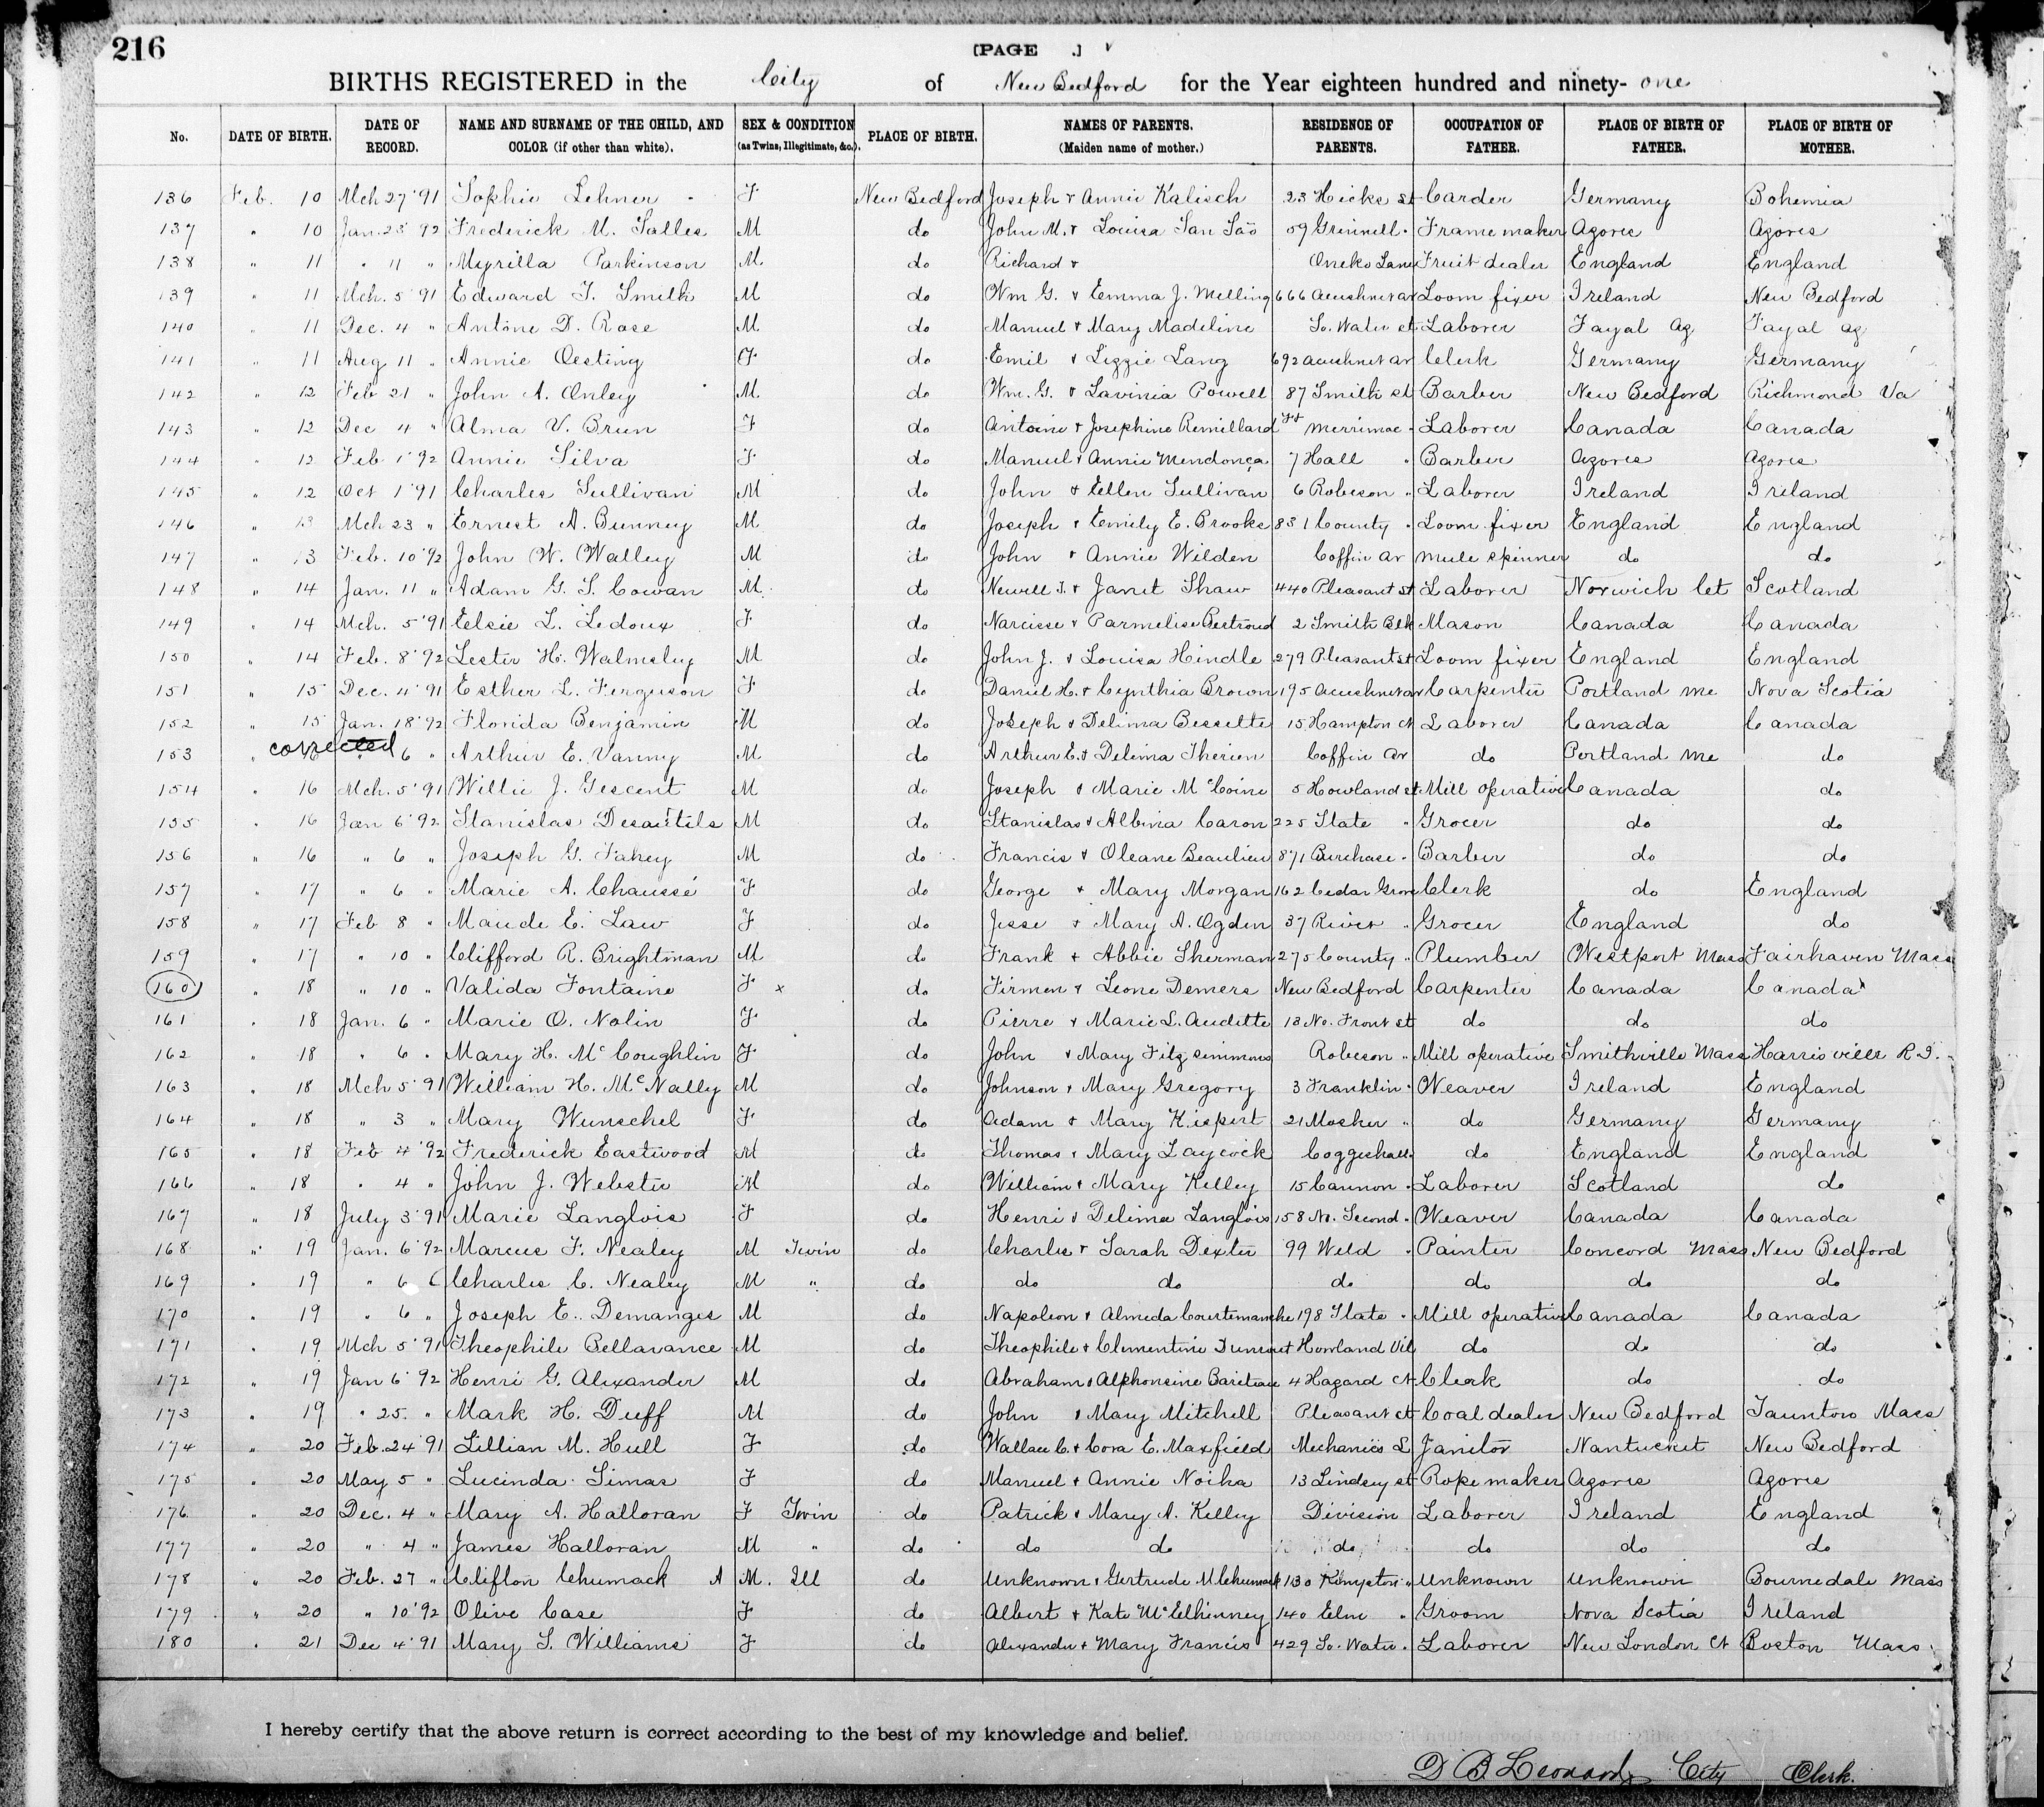 216
[PAGE .]
BIRTHS REGISTERED in the City of New Bedford for the Year eighteen hundred and ninety- one
No. DATE OF BIRTH. DATE OF RECORD. NAME AND SURNAME OF THE CHILD, AND COLOR (if other than white). SEX & CONDITION (as Twins, Illegitimate, &c.). PLACE OF BIRTH. NAMES OF PARENTS. (Maiden name of mother.) RESIDENCE OF PARENTS. OCCUPATION OF FATHER. PLACE OF BIRTH OF FATHER. PLACE OF BIRTH OF MOTHER.
136 Feb. 10 Mch 27 '91 Sophie Lehner F New Bedford Joseph & Annie Kalisch 23 Hicks st Carder Germany Bohemia
137 " 10 Jan. 25 '92 Frederick M. Salles M do John M. & Louisa San Saõ 59 Grinnell " Frame maker Azores Azores
138 " 11 " 11 " Myrilla Parkinson M. do Richard & Oneko Lane Fruit dealer England England
139 " 11 Mch. 5 '91 Edward T. Smith M do Wm G. & Emma J. Melling 666 Acushnet av Loom fixer Ireland New Bedford
140 " 11 Dec. 4 " Antone D. Rose M. do Manuel & Mary Madeline So. Water st Laborer Fayal Az Fayal Az
141 " 11 Aug 11 " Annie Oesting F do Emil & Lizzie Lang 692 Acushnet av Clerk Germany Germany
142 " 12 Feb 21 " John A. Onley M. do Wm. G. & Lavinia Powell 87 Smith st Barber New Bedford Richmond Va
143 " 12 Dec 4 " Alma V. Brun F do Antoine & Josephine Remillard Ft Merrimac " Laborer Canada Canada
144 " 12 Feb 1 '92 Annie Silva F do Manuel & Annie Mendonça 7 Hall " Barber Azores Azores
145 " 12 Oct 1 '91 Charles Sullivan M do John & Ellen Sullivan 6 Robeson " Laborer Ireland Ireland
146 " 13 Mch 23 " Ernest A. Bunney M do Joseph & Emily E. Brooks 831 County " Loom fixer England England
147 " 13 Feb. 10 '92 John W. Walley M do John & Annie Wilden Coffin av Mule spinner do do
148 " 14 Jan. 11 " Adam G. S. Cowan M. do Newell S. & Janet Shaw 440 Pleasant st Laborer Norwich Ct Scotland
149 " 14 Mch. 5 '91 Elsie L. Ledoux F do Narcisse & Parmelise Bertroud 2 Smith Blk Mason Canada Canada
150 " 14 Feb. 8 '92 Lester H. Walmsley M do John J. & Louisa Hindle 279 Pleasant st Loom fixer England England
151 " 15 Dec. 4 '91 Esther L. Ferguson F do Daniel H. & Cynthia Brown 195 Acushnet av Carpenter Portland Me Nova Scotia
152 " 15 Jan. 18 '92 Florida Benjamin M do Joseph & Delima Bessette 15 Hampton ct Laborer Canada Canada
153 " corrected 6 " Arthur E. Vanny M do Arthur E. & Delima Therien Coffin av do Portland Me do
154 " 16 Mch. 5 '91 Willie J. Gescent M do Joseph & Marie McCoine 5 Howland st Mill operative Canada do
155 " 16 Jan 6 '92 Stanislas Desautels M do Stanislas & Albina Caron 225 State " Grocer do do
156 " 16 " 6 " Joseph G. Fahey M do Francis & Oleane Beaulieu 871 Purchase " Barber do do
157 " 17 " 6 " Marie A. Chaussé F do George & Mary Morgan 162 Cedar Grove Clerk do England
158 " 17 Feb 8 " Maude E. Law F do Jesse & Mary A. Ogden 37 River " Grocer England do
159 " 17 " 10 " Clifford R. Brightman M do Frank & Abbie Sherman 275 County " Plumber Westport Mass Fairhaven Mass
160 " 18 " 10 " Valida Fontaine F x do Firmen & Leone Demers New Bedford Carpenter Canada Canada
161 " 18 Jan. 6 " Marie O. Nolin F do Pierre & Marie L. Audette 13 No. Front st do do do
162 " 18 " 6 " Mary H. McCoughlin F do John & Mary Fitzsimmons Robeson " Mill operative Smithville Mass Harrisville R.I.
163 " 18 Mch 5 '91 William H. McNally M do Johnson & Mary Gregory 3 Franklin " Weaver Ireland England
164 " 18 " 3 " Mary Wunschel F do Adam & Mary Kispert 21 Mosher " do Germany Germany
165 " 18 Feb 4 '92 Frederick Eastwood M do Thomas & Mary Laycock Coggeshall " do England England
166 " 18 " 4 " John J. Webster M do William & Mary Kelley 15 Cannon " Laborer Scotland do
167 " 18 July 3 '91 Marie Langlois F do Henri & Delima Langlois 158 No. Second " Weaver Canada Canada
168 " 19 Jan. 6 '92 Marcus F. Nealey M Twin do Charles & Sarah Dexter 99 Weld " Painter Concord Mass New Bedford
169 " 19 " 6 Charles C. Nealey M " do do do do do do do
170 " 19 " 6 " Joseph E. Demanges M do Napoleon & Almeda Courtemanche 198 State " Mill operative Canada Canada
171 " 19 Mch 5 '91 Theophile Bellavance M do Theophile & Clementine Dumont Howland Vil do do do
172 " 19 Jan 6 '92 Henri G. Alexander M do Abraham & Alphonsine Bariteau 4 Hazard ct Clerk do do
173 " 19 " 25 " Mark H. Duff M do John & Mary Mitchell Pleasant st Coal dealer New Bedford Taunton Mass
174 " 20 Feb. 24 '91 Lillian M. Hull F do Wallace C. & Cora E. Maxfield Mechanics L Janitor Nantucket New Bedford
175 " 20 May 5 " Lucinda Simas F do Manuel & Annie Noika 13 Lindsey st Rope maker Azores Azores
176 " 20 Dec. 4 " Mary A. Halloran F Twin do Patrick & Mary A. Kelley Division Laborer Ireland England
177 " 20 " 4 " James Halloran M " do do do do do do do
178 " 20 Feb. 27 " Clifton Chumack A M. Ill do Unknown & Gertrude M Chumack 130 Kempton " Unknown Unknown Bournedale Mass
179 " 20 " 10 '92 Olive Case F do Albert & Kate McElhinney 140 Elm " Groom Nova Scotia Ireland
180 " 21 Dec 4 '91 Mary S. Williams F do Alexander & Mary Francis 429 So. Water " Laborer New London Ct Boston Mass.
I hereby certify that the above return is correct according to the best of my knowledge and belief.
D B Leonard, City Clerk.